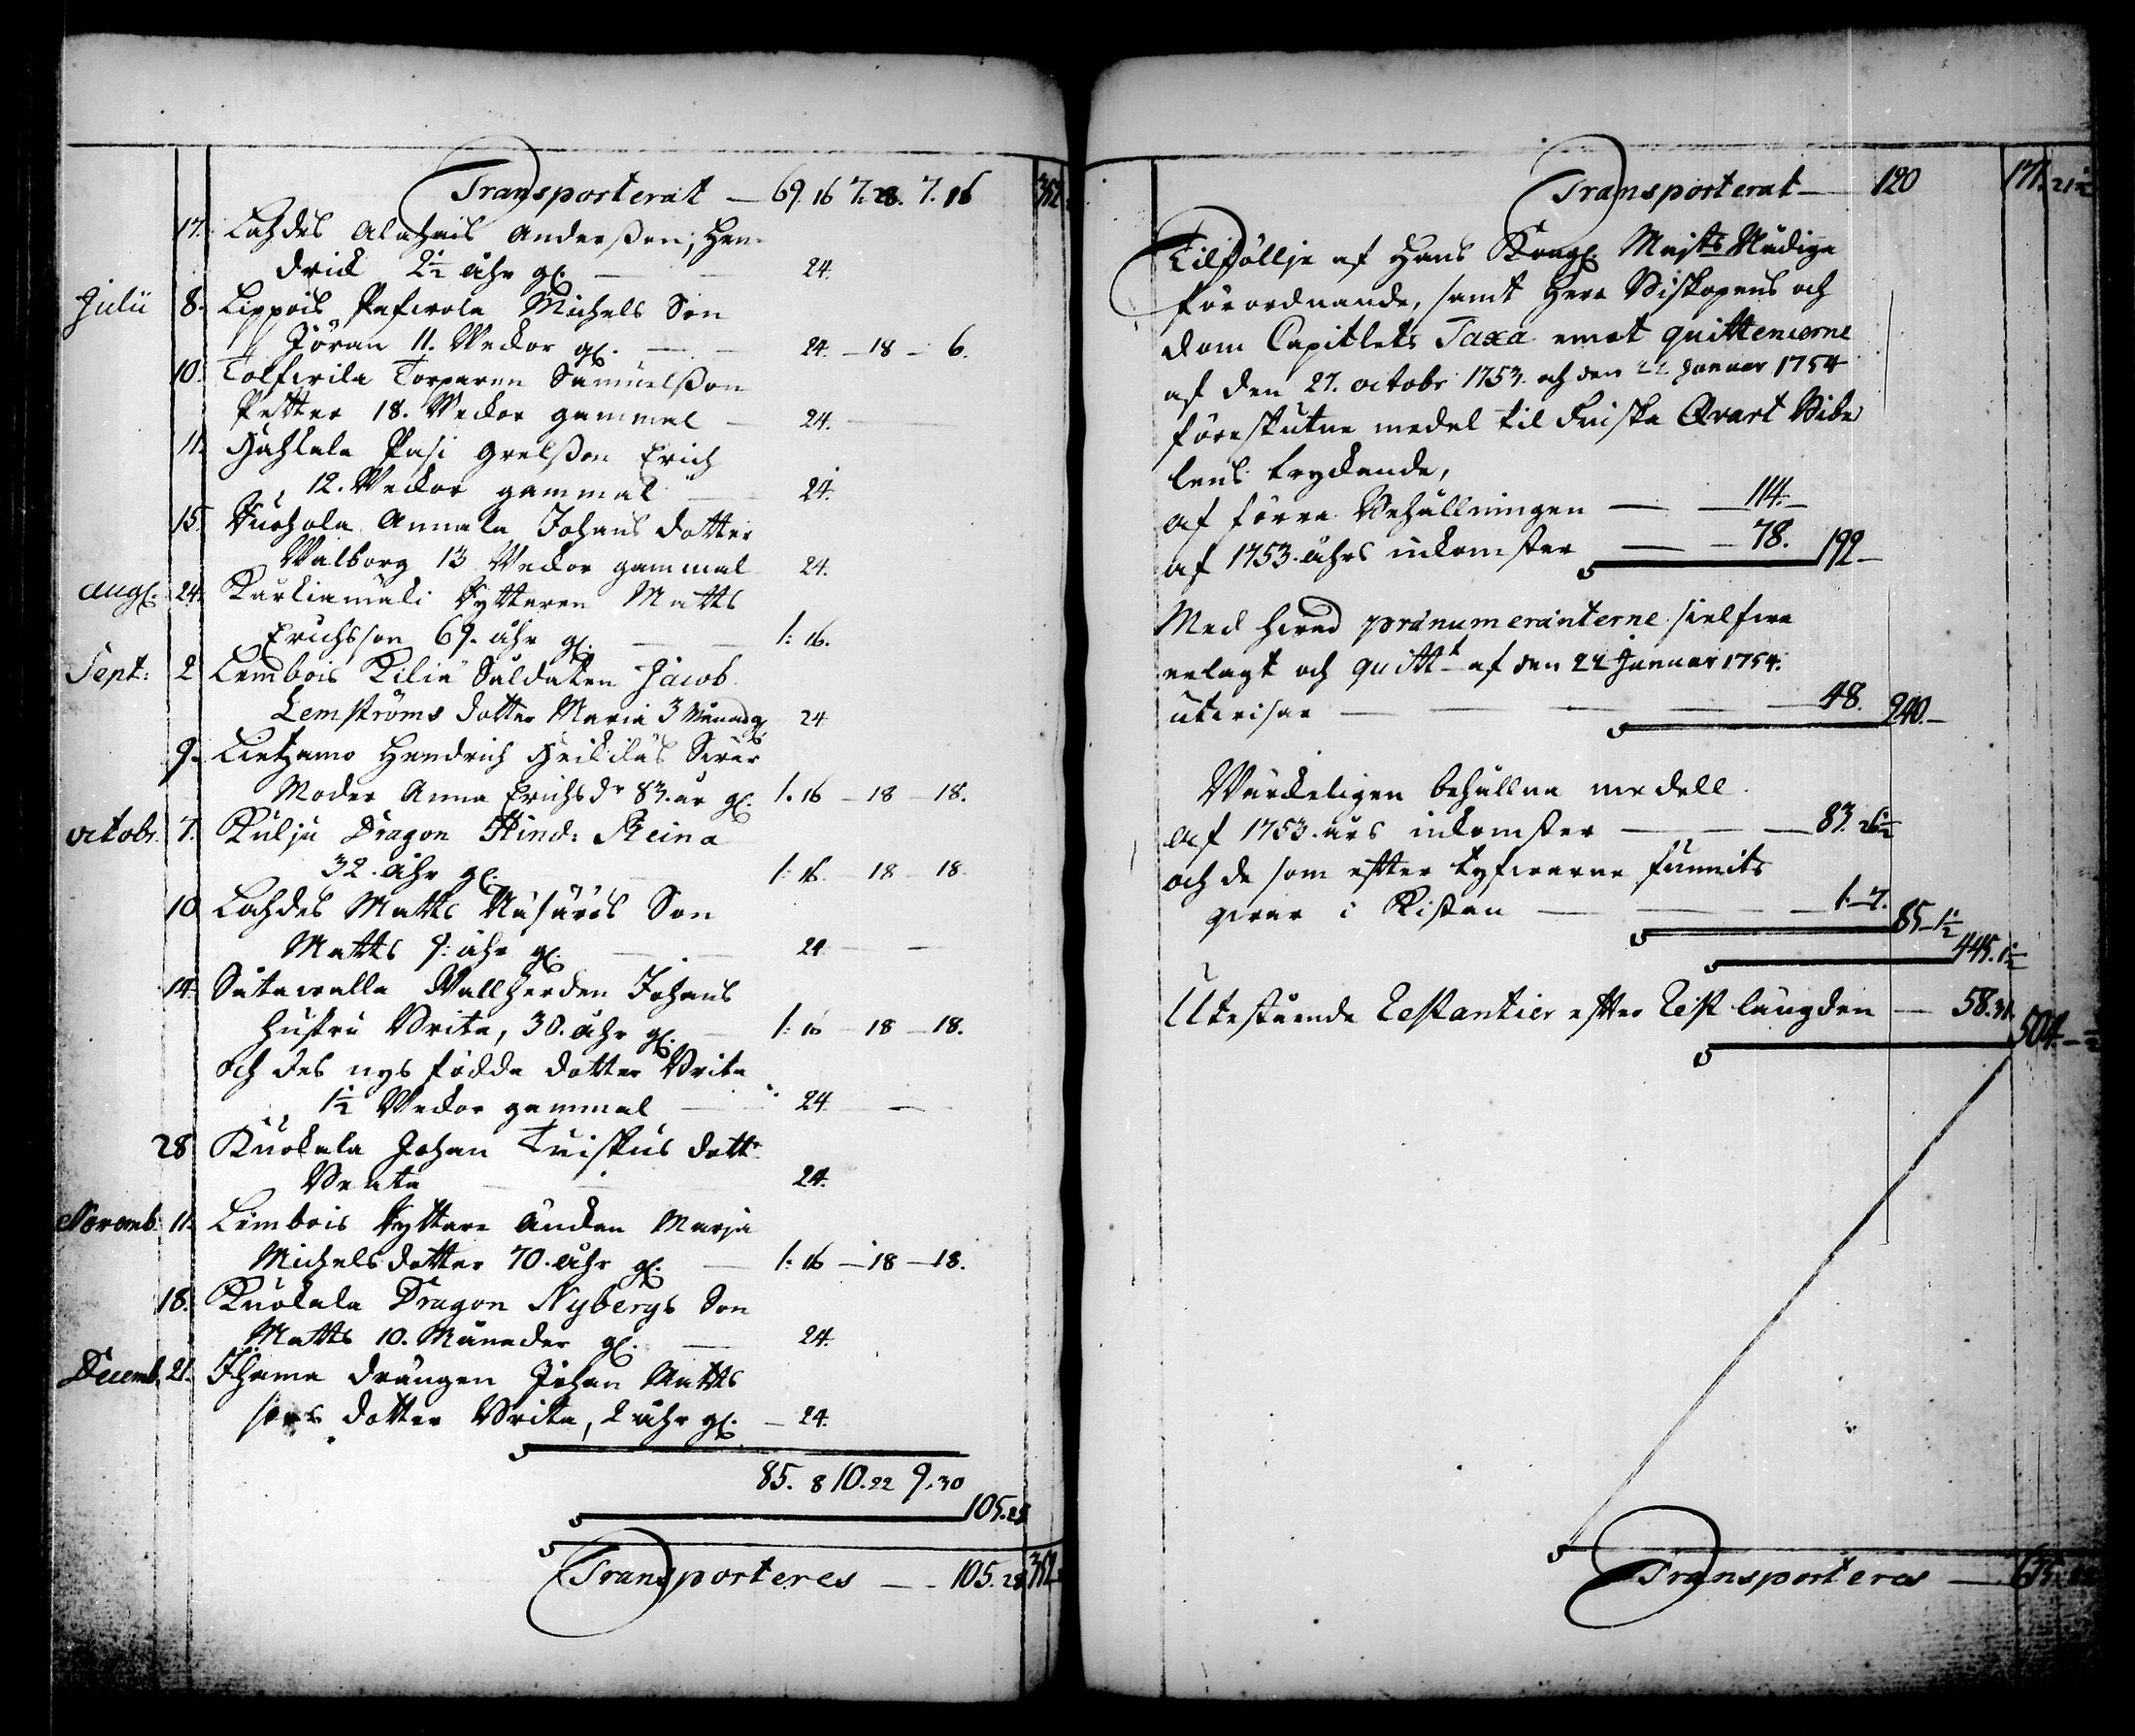 Transporterat — 69. 16 7. 28. 7. 16 352
17. Lahdes Alahais Anderßon, Hen-
drick 2½ åhr gl. — 24.
Julii 8. Lippois Pafwola Michels Son
Jöran 11. Weckor gl. — 24. — 18 — 6.
10. Tolfwila Torparen Samuelßon
Petter 18. Weckor gammal — 24.
11. Hahkala Pasi Grelßon Erich
12. Weckor gammal — 24.
15. Annala Johans dotter
Walborg 13 Weckor gammal 24.
Aug. 24. Tyttaren Matts
Erichsson 69. åhr gl. — 1: 16.
Sept: 2 Lembois Kiliä Saldaten Jacob
Lemströms dotter Maria 3 Månad gl. 24
9. Lietzamo Hendrich Heikiläs Swär
Moder Anna Erichs dr 83. år gl. 1. 16 — 18 — 18.
octobr. 7. Kulju Dragon Hind: Steina
32. åhr gl. 1: 16 — 18 — 18.
10 Lahdes Matts Son
Matts 9: åhr gl. — 24 —
14. Wallherden Johans
hustru Brita, 30. åhr gl. — 1: 16 — 18 — 18.
och des nys födda dotter Brita
1½ Weckor gammal — 24. —
28 Kuokala Johan dottr
Beata — 24.
Novemb. 11. Lembois Tyttare Änckan Marja
Michelsdotter 70. åhr gl. — 1: 16 — 18 — 18.
18. Kuokala Dragon Nybergs Son
Matts 10. Månader gl. — 24.
Decemb. 21. Ihama drängen Johan Matts
sons dotter Brita, 2 åhr gl. — 24.
85. 8 10. 22 9. 30
105. 28
Transporteres — 105. 28 352
Transporterat — 120 171. 21½
Tilföllje af Hans Kongl. Majts Nådiga
förordnande, samt Herr Biskopens och
Dom Capitlets Taxa emot quittencerne
af den 27. octobr 1753. och den 22. Januar 1754
föreskutne medel til Finska Qvart Bibe
lens tryckande,
af förra Behållningen — 114. —
af 1753. åhrs inkomster — 78. 192 —
Med hwad pränumeranterne sielfwa
erlagt och quittt af den 22 Januar 1754.
utwisar — 48. 240. —
Würckeligen behållna medell
af 1753. års inkomster — 83. 26½
och de som efter tyfwarne funnits
qwar i Kistan — 1. 7. 85 — 1½
445. 1½
Utestående Restantier efter Rest längden — 58. 31. 504. — ½
Transporteres —